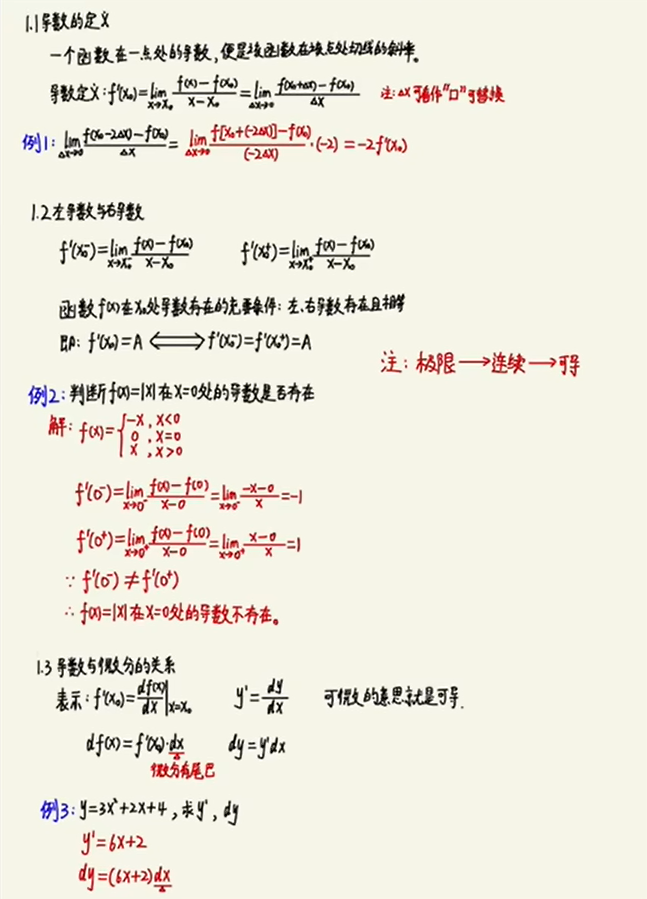 1.1 导数的定义
一个函数在一点处的导数,便是该函数在该点处切线的斜率。
导数定义:f'(x₀)=lim_{x→x₀} (f(x)-f(x₀))/(x-x₀)=lim_{Δx→0} (f(x₀+Δx)-f(x₀))/Δx 注:Δx可看作"口"可替换
例1:lim_{Δx→0} (f(x₀-2Δx)-f(x₀))/Δx = lim_{Δx→0} (f[x₀+(-2Δx)]-f(x₀))/(-2Δx)·(-2) = -2f'(x₀)
1.2 左导数与右导数
f'(x₀⁻)=lim_{x→x₀⁻} (f(x)-f(x₀))/(x-x₀) f'(x₀⁺)=lim_{x→x₀⁺} (f(x)-f(x₀))/(x-x₀)
函数f(x)在x₀处导数存在的充要条件:左、右导数存在且相等
即:f'(x₀)=A ⟺ f'(x₀⁻)=f'(x₀⁺)=A
注:极限→连续→可导
例2:判断f(x)=|x|在x=0处的导数是否存在
解:f(x)={-x,x<0
0,x=0
x,x>0
f'(0⁻)=lim_{x→0⁻} (f(x)-f(0))/(x-0)=lim_{x→0⁻} (-x-0)/x=-1
f'(0⁺)=lim_{x→0⁺} (f(x)-f(0))/(x-0)=lim_{x→0⁺} (x-0)/x=1
∵ f'(0⁻)≠f'(0⁺)
∴ f(x)=|x|在x=0处的导数不存在。
1.3 导数与微分的关系
表示:f'(x₀)=df(x)/dx|_{x=x₀} y'=dy/dx 可微的意思就是可导.
df(x)=f'(x₀)·dx dy=y'dx
微分有尾巴
例3:y=3x²+2x+4,求y',dy
y'=6x+2
dy=(6x+2)dx